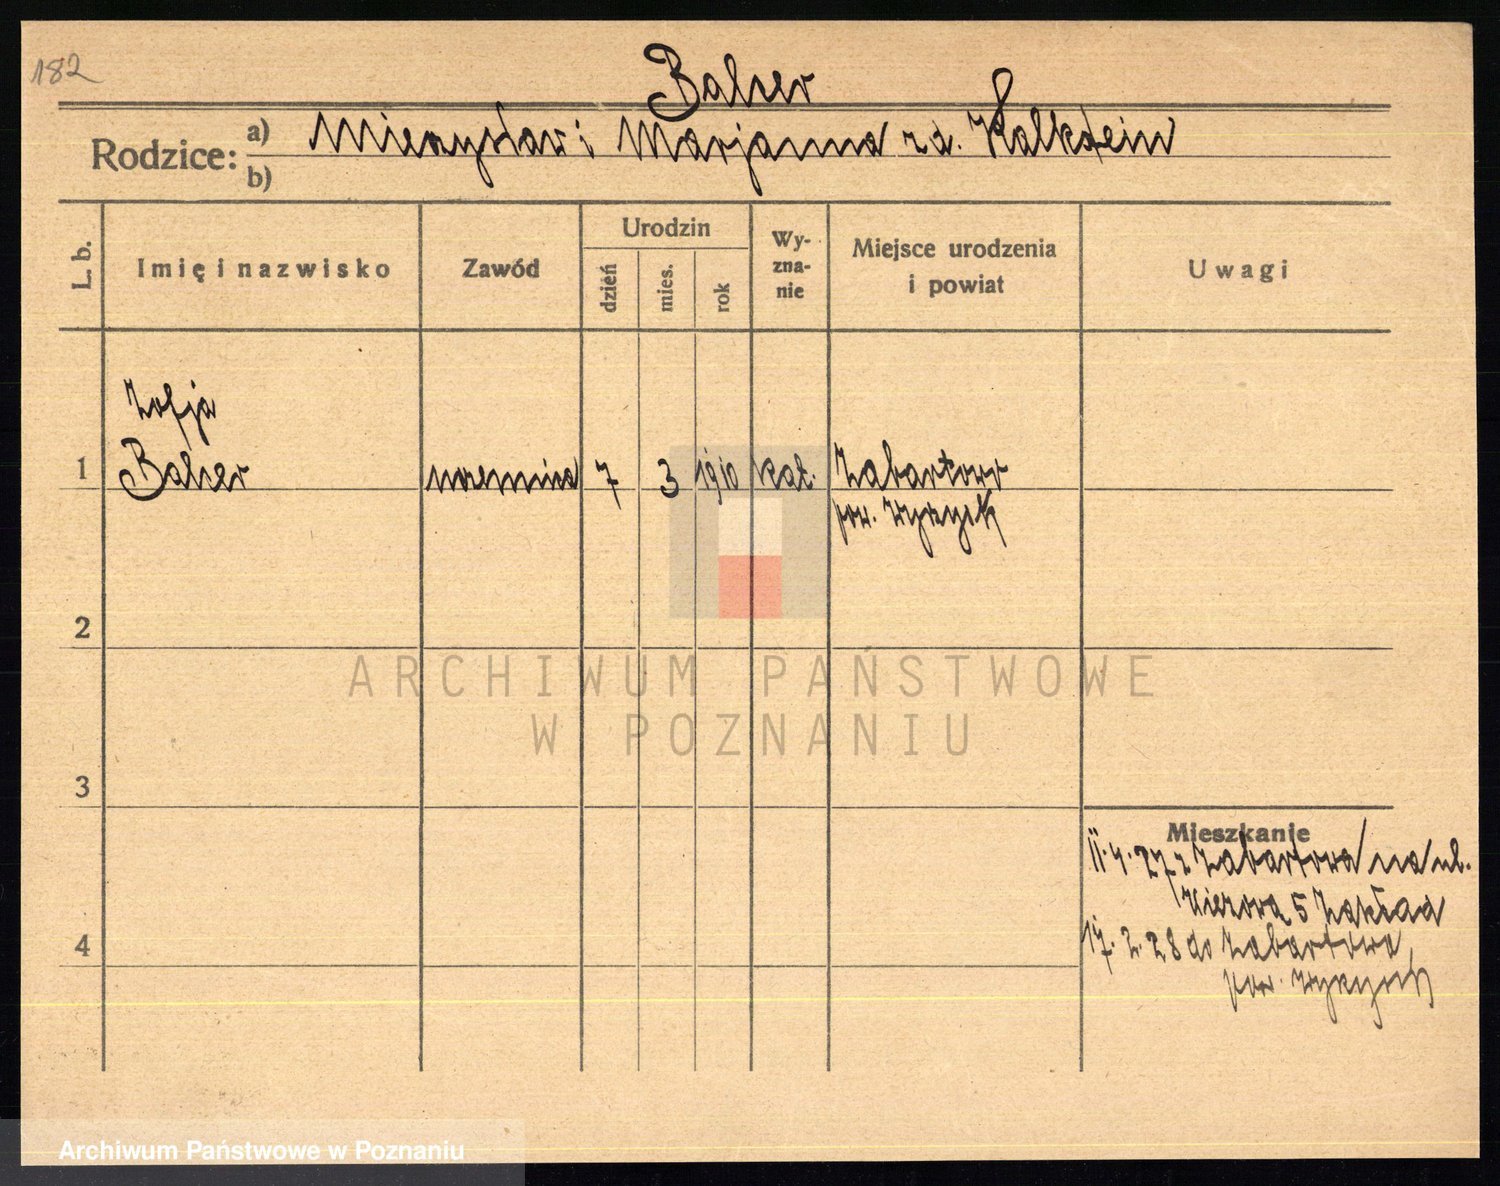 182
Balcer
Rodzice: a) Mieczysław i Marjanna zd. Kalkstein
b)
L. b. Imię i nazwisko Zawód Urodzin dzień mies. rok Wy-zna-nie Miejsce urodzenia i powiat Uwagi
Zofja
1 Balcer uczenica 7 3 1910 kat. Zabartowo
pow. Wyrzysk
2
ARCHIWUM PAŃSTWOWE
W POZNANIU
3
Mieszkanie
11.4.27 z Zabartowa na ul.
5 Zakład
4 17.2.28 do Zabartowo,
pow. Wyrzysk
Archiwum Państwowe w Poznaniu